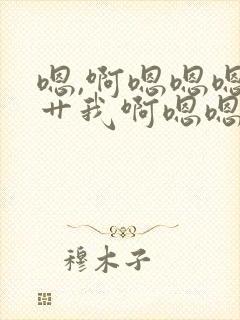 嗯,啊嗯嗯嗯
艹我啊嗯嗯
穆木子